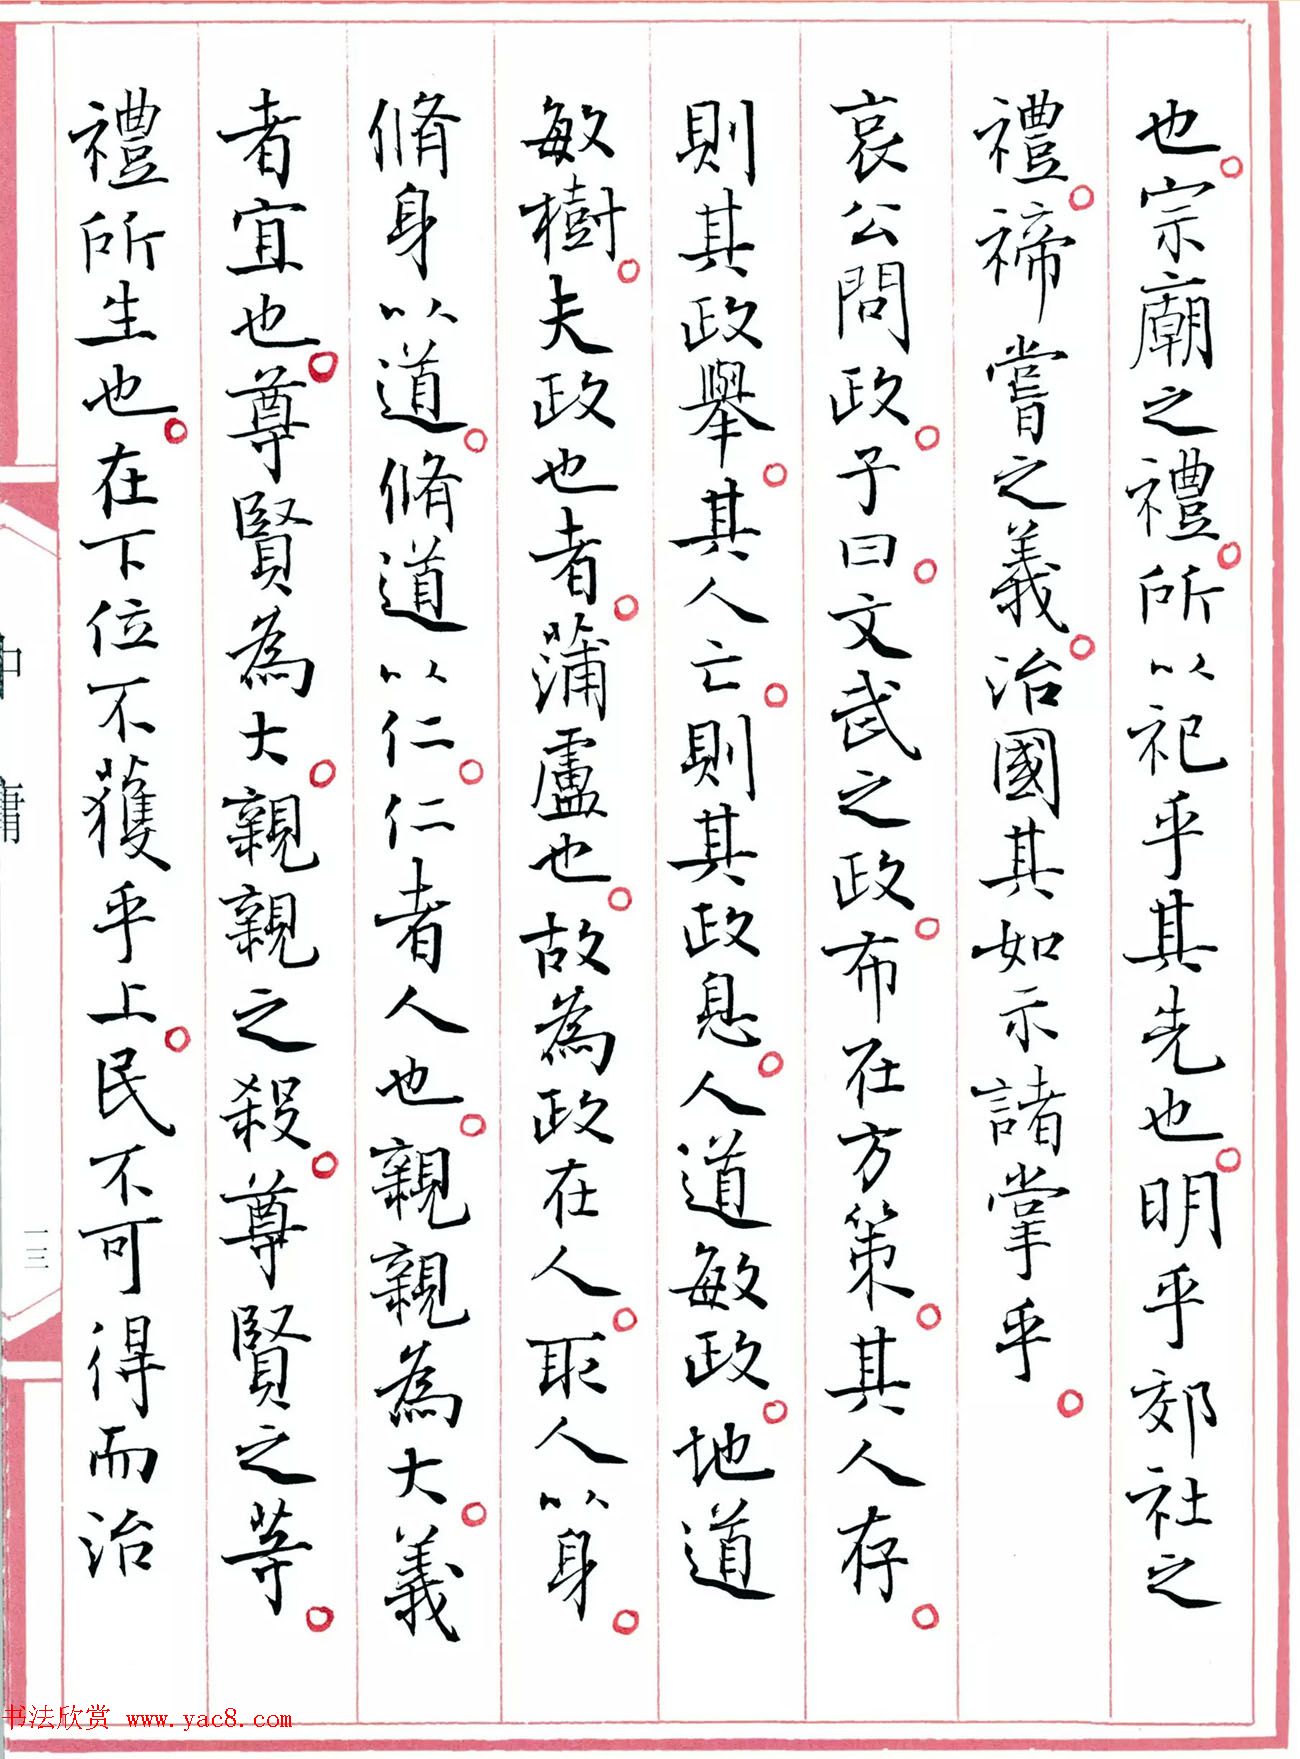 也。宗廟之禮。所以祀乎其先也。明乎郊社之
禮。禘嘗之義。治國其如示諸掌乎。
哀公問政。子曰。文武之政。布在方策。其人存。
則其政舉。其人亡。則其政息。人道敏政。地道
敏樹。夫政也者。蒲盧也。故為政在人。取人以身。
脩身以道。脩道以仁。仁者人也。親親為大。義
者宜也。尊賢為大。親親之殺。尊賢之等。
禮所生也。在下位不獲乎上。民不可得而治
中庸
一三
书法欣赏 www.yac8.com